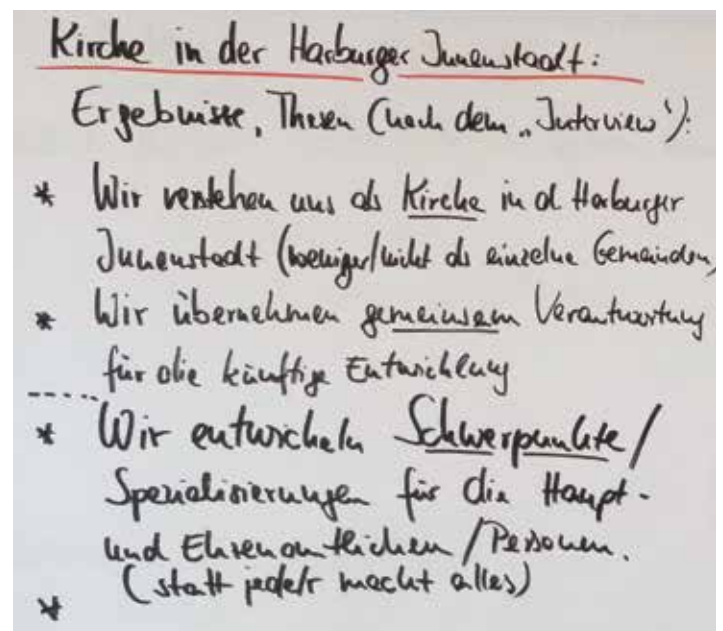 Kirche in der Harburger Innenstadt:
Ergebnisse, Thesen (nach dem „Interview"):
* Wir verstehen uns als Kirche in d Harburger
Innenstadt (weniger/nicht als einzelne Gemeinden)
* Wir übernehmen gemeinsam Verantwortung
für die künftige Entwicklung
* Wir entwickeln Schwerpunkte/
Spezialisierungen für die Haupt-
und Ehrenamtlichen/Personen.
(statt jede/r macht alles)
*